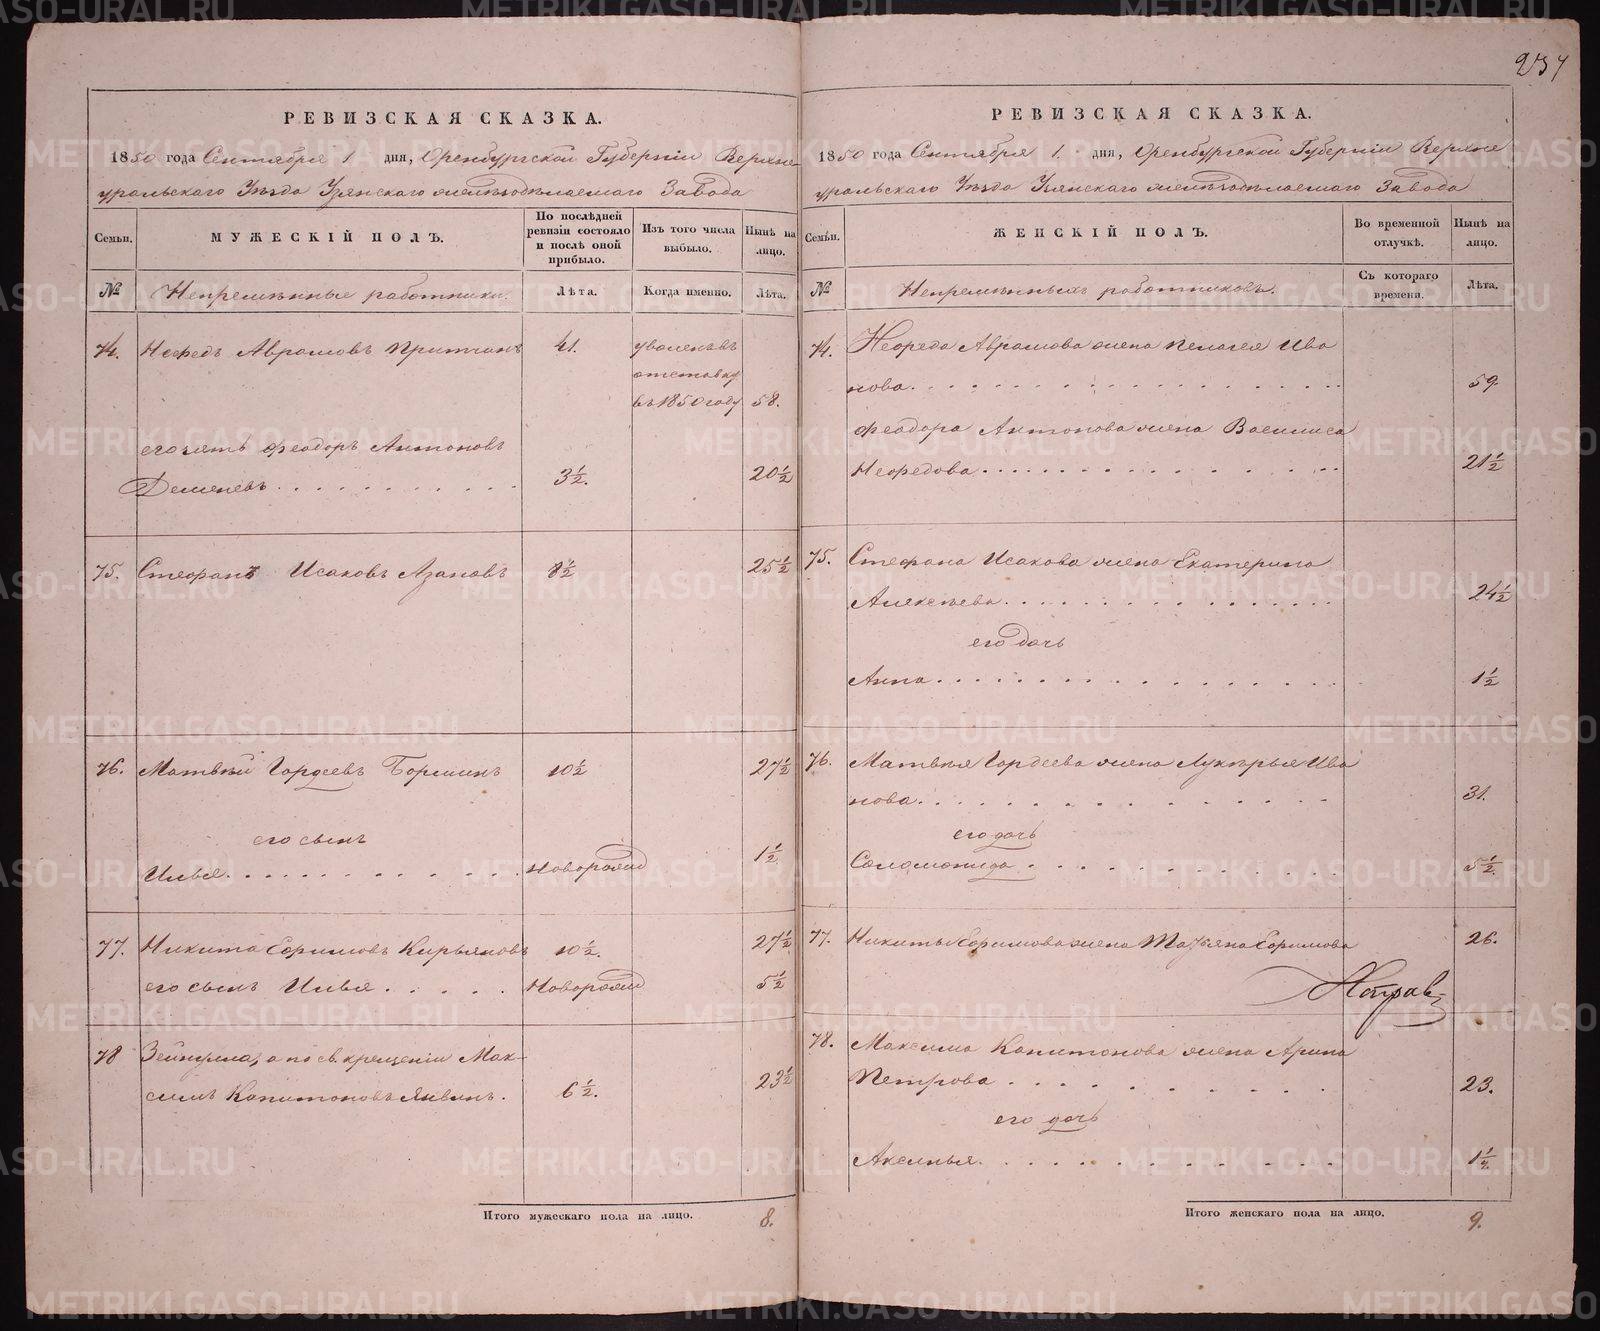 237
РЕВИЗСКАЯ СКАЗКА.
1850 года Сентября 1 дня, Оренбургской Губерніи Верхне
уральскаго Уѣзда Узянскаго желѣзодѣлаемаго Завода
Семьи.
МУЖЕСКІЙ ПОЛЪ.
По послѣдней ревизіи состояло и послѣ оной прибыло.
Изъ того числа выбыло.
Нынѣ на лицо.
№ Непремѣнные работники. Лѣта. Когда именно. Лѣта.
74. Нефедъ Аврамовъ 41. уволенъ въ
отставку
въ 1850 году 58.
его зять Феодоръ Антоновъ
Деменевъ 3½. 20½
75. Стефанъ Исаковъ Азановъ 8½ 25½
76. Матвѣй Гордеевъ 10½ 27½
его сынъ
Илья Новорожд 1½
77. Никита Ефимовъ Кирьяновъ 10½. 27½
его сынъ Илья Новорожд 5½
78 а по св. крещеніи Мак-
симъ Капитоновъ 6½. 23½
Итого мужескаго пола на лицо. 8.
РЕВИЗСКАЯ СКАЗКА.
1850 года Сентября 1. дня, Оренбургской Губерніи Верхне
уральскаго Уѣзда Узянскаго желѣзодѣлаемаго Завода
Семьи.
ЖЕНСКІЙ ПОЛЪ.
Во временной отлучкѣ.
Нынѣ на лицо.
№ Непремѣнныхъ работниковъ. Съ котораго времени. Лѣта.
74. Нефеда Аврамова жена Пелагея Ива
нова 59.
Феодора Антонова жена Василиса
Нефедова 21½
75. Стефана Исакова жена Екатерина
Алексѣева 24½
его дочь
Анна 1½
76. Матвѣя Гордеева жена Лукерья Ива
нова 31.
его дочь
Соломонида 5½
77. Никиты Ефимова жена Татьяна Ефимова 26.
78. Максима Капитонова жена Арина
Петрова 23.
его дочь
Аксинья 1½
Итого женскаго пола на лицо. 9.
METRIKI.GASO-URAL.RU